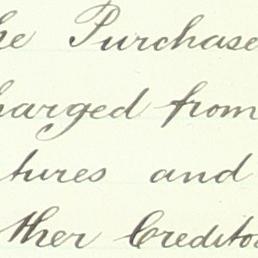 he Purchase
harged from
tures and
ther Creditor